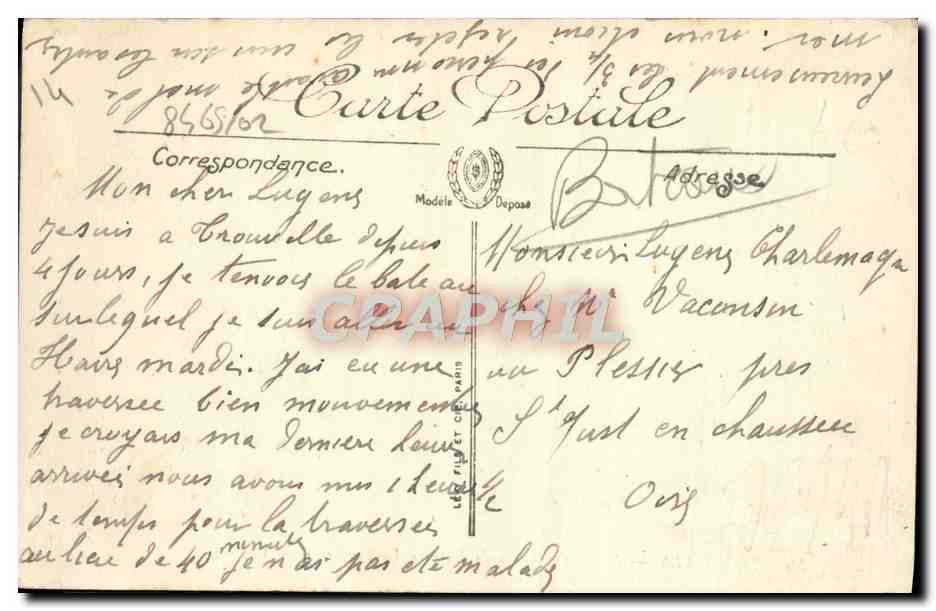 Carte Postale
Correspondance.
Adresse
Modèle Déposé
Mon cher Eugene
Je suis a Trouville depuis
4 jours, je t'envois le bateau
sur lequel je suis aller au
Havre mardi. J'ai eu une
traversée bien mouvementée
je croyais ma derniere heure
arrivée nous avons mis 1 heure 1/2
de temps pour la traversée
au lieu de 40 minutes je n'ai pas eté malade
heureusement les 3/4 des personnes
mal de
mer. nous allons
le
Monsieur Eugene Charlemagne
chez Mr Vaconsin
au Plessier pres
St Just en chaussée
Oise
LEVY FILS ET CIE, PARIS
CPAPHIL
14